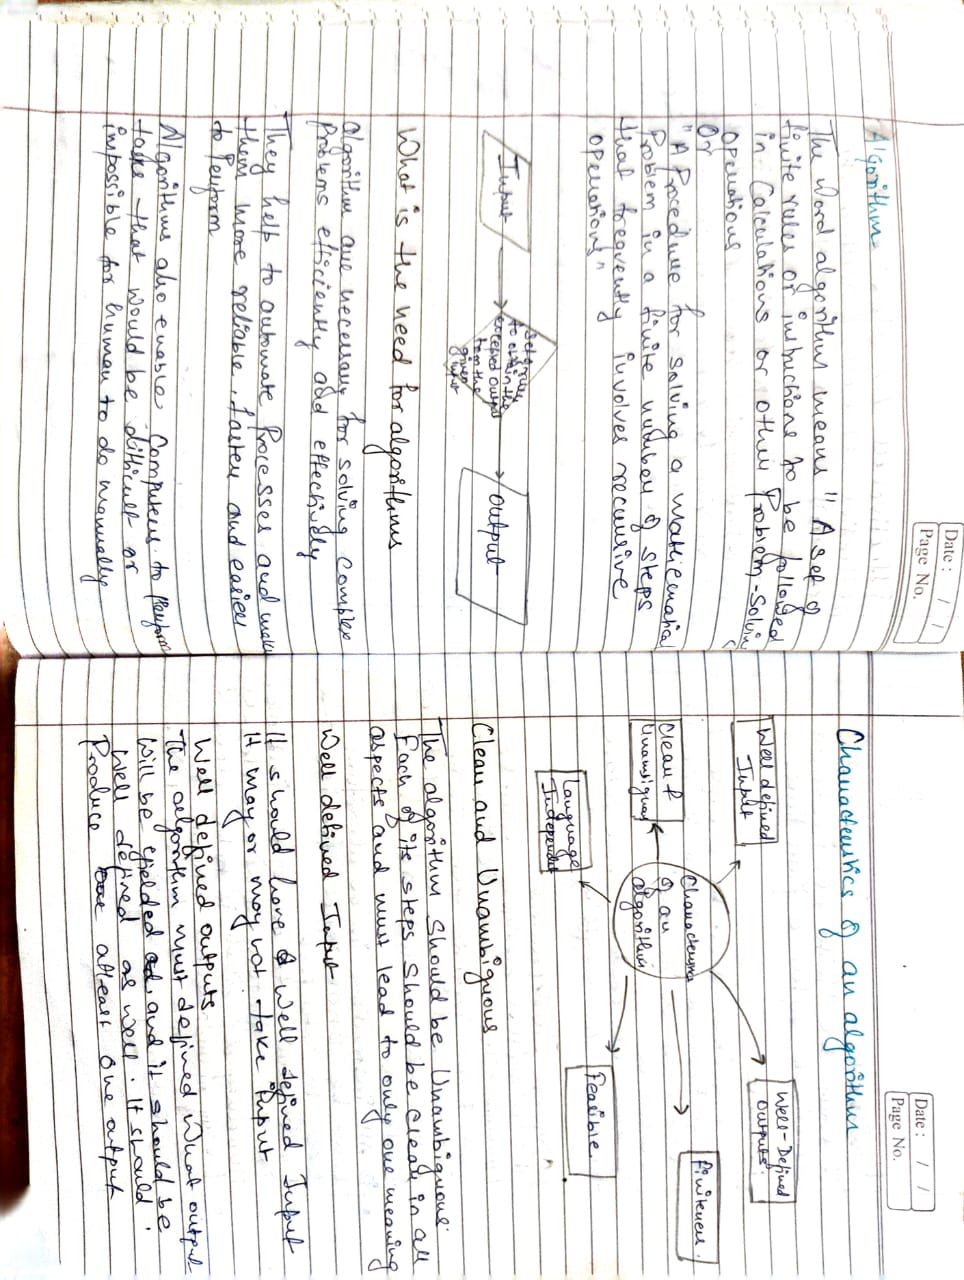 Date : / /
Page No.
Algorithm
The word algorithm means " A set of
finite rules or instructions to be followed
in Calculations or other Problem-Solvin
operations
Or
"A Procedure for solving a mathematical
Problem in a finite number of steps
that frequently involves recursive
operations"
Input
Set of rules
to obtain the
expected output
from the
given
input
Output
What is the need for algorithms
Algorithm are necessary for solving complex
Problems efficiently add effectively
They help to automate Processes and make
them more reliable, faster and easier
to Perform
Algorithms also enable Computers to Perform
tasks that would be difficult or
impossible for human to do manually
Date : / /
Page No.
Characteristics of an algorithm
Well defined
Input
Well-Defined
Outputs.
Clean &
Unambiguous
Characteristics
of an
algorithm
Finiteness.
Language
Independent
Feasible
Clean and Unambiguous
The algorithm Should be Unambiguous.
Each of its steps should be clean in all
aspects and must lead to only one meaning
Well defined Input
It should have a well defined Input
It may or may not take input
Well defined outputs
The algorithm must defined what output
will be yielded and it should be
well defined as well. It should
Produce atleast one output